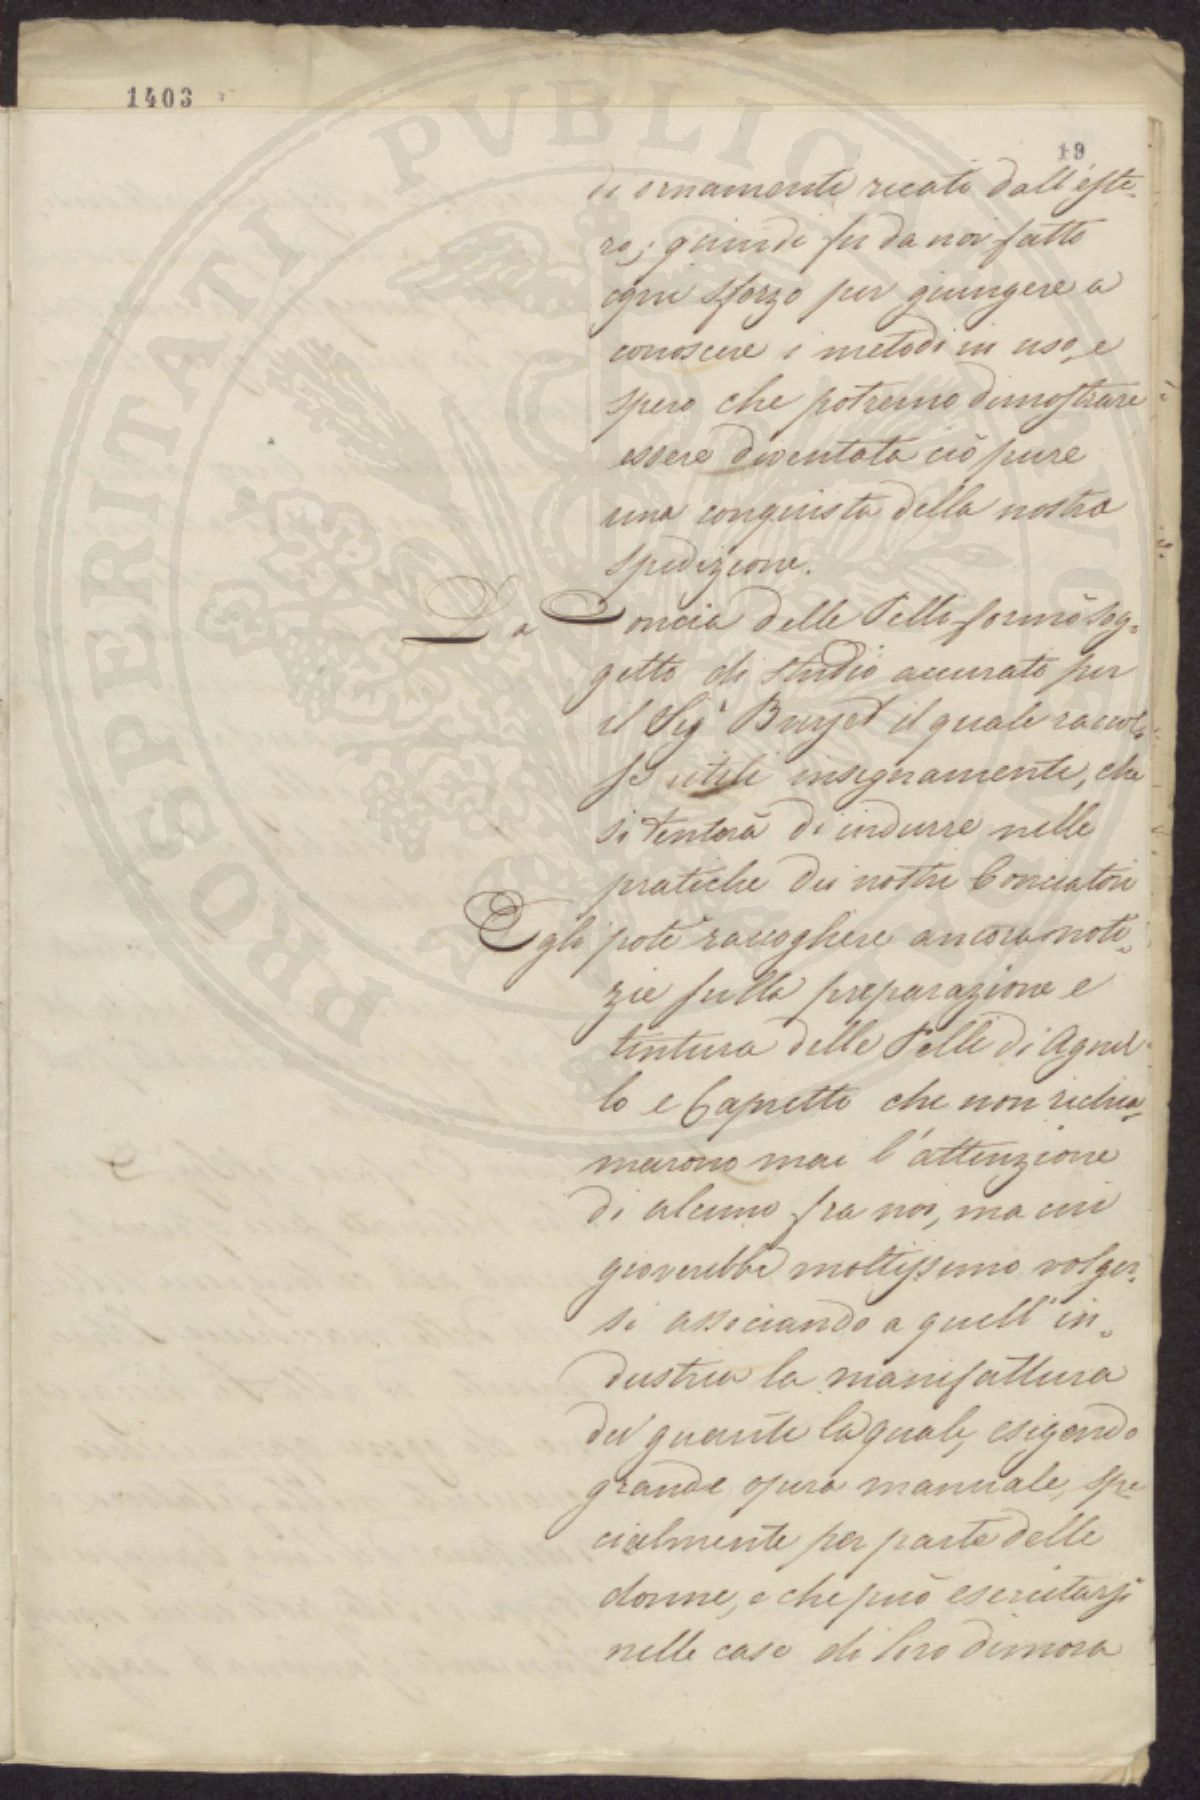 1403
19
di ornamento recati dall'este-
ro; quindi fu da noi fatto
ogni sforzo per giungere a
conoscere i metodi in uso, e
spero che potremo dimostrare
essere diventata ciò pure
una conquista della nostra
spedizione.
La Concia delle Pelli formò sog-
getto di studio accurato per
il Sigr il quale raccol-
se utili insegnamenti, che
si tenterà di indurre nelle
pratiche dei nostri Conciatori
Egli potè raccogliere ancora noti-
zie sulla preparazione e
tintura delle Pelli di Agnel-
lo e Capretto che non richia-
marono mai l'attenzione
di alcuno fra noi, ma cui
gioverebbe moltissimo volger-
si associando a quell'in-
dustria la manifattura
dei guanti la quale, esigendo
grande opera manuale, spe-
cialmente per parte delle
donne, e che può esercitarsi
nelle case di loro dimora
PROSPERITATI PVBLICAE